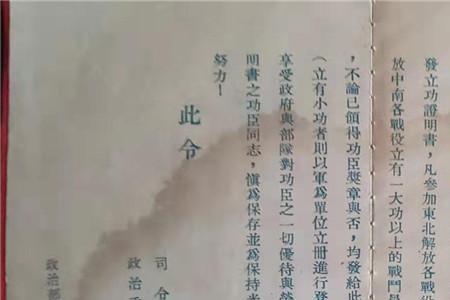 發立功證明書，凡參加東北解放各戰
放中南各戰役立有一大功以上的戰鬥
，不論已領得功臣獎章與否，均發給此
（立有小功者則以軍爲單位立冊進行登
享受政府與部隊對功臣之一切優待與
明書之功臣同志，愼爲保存並爲保持
努力！
此令
司令
政治
政治部